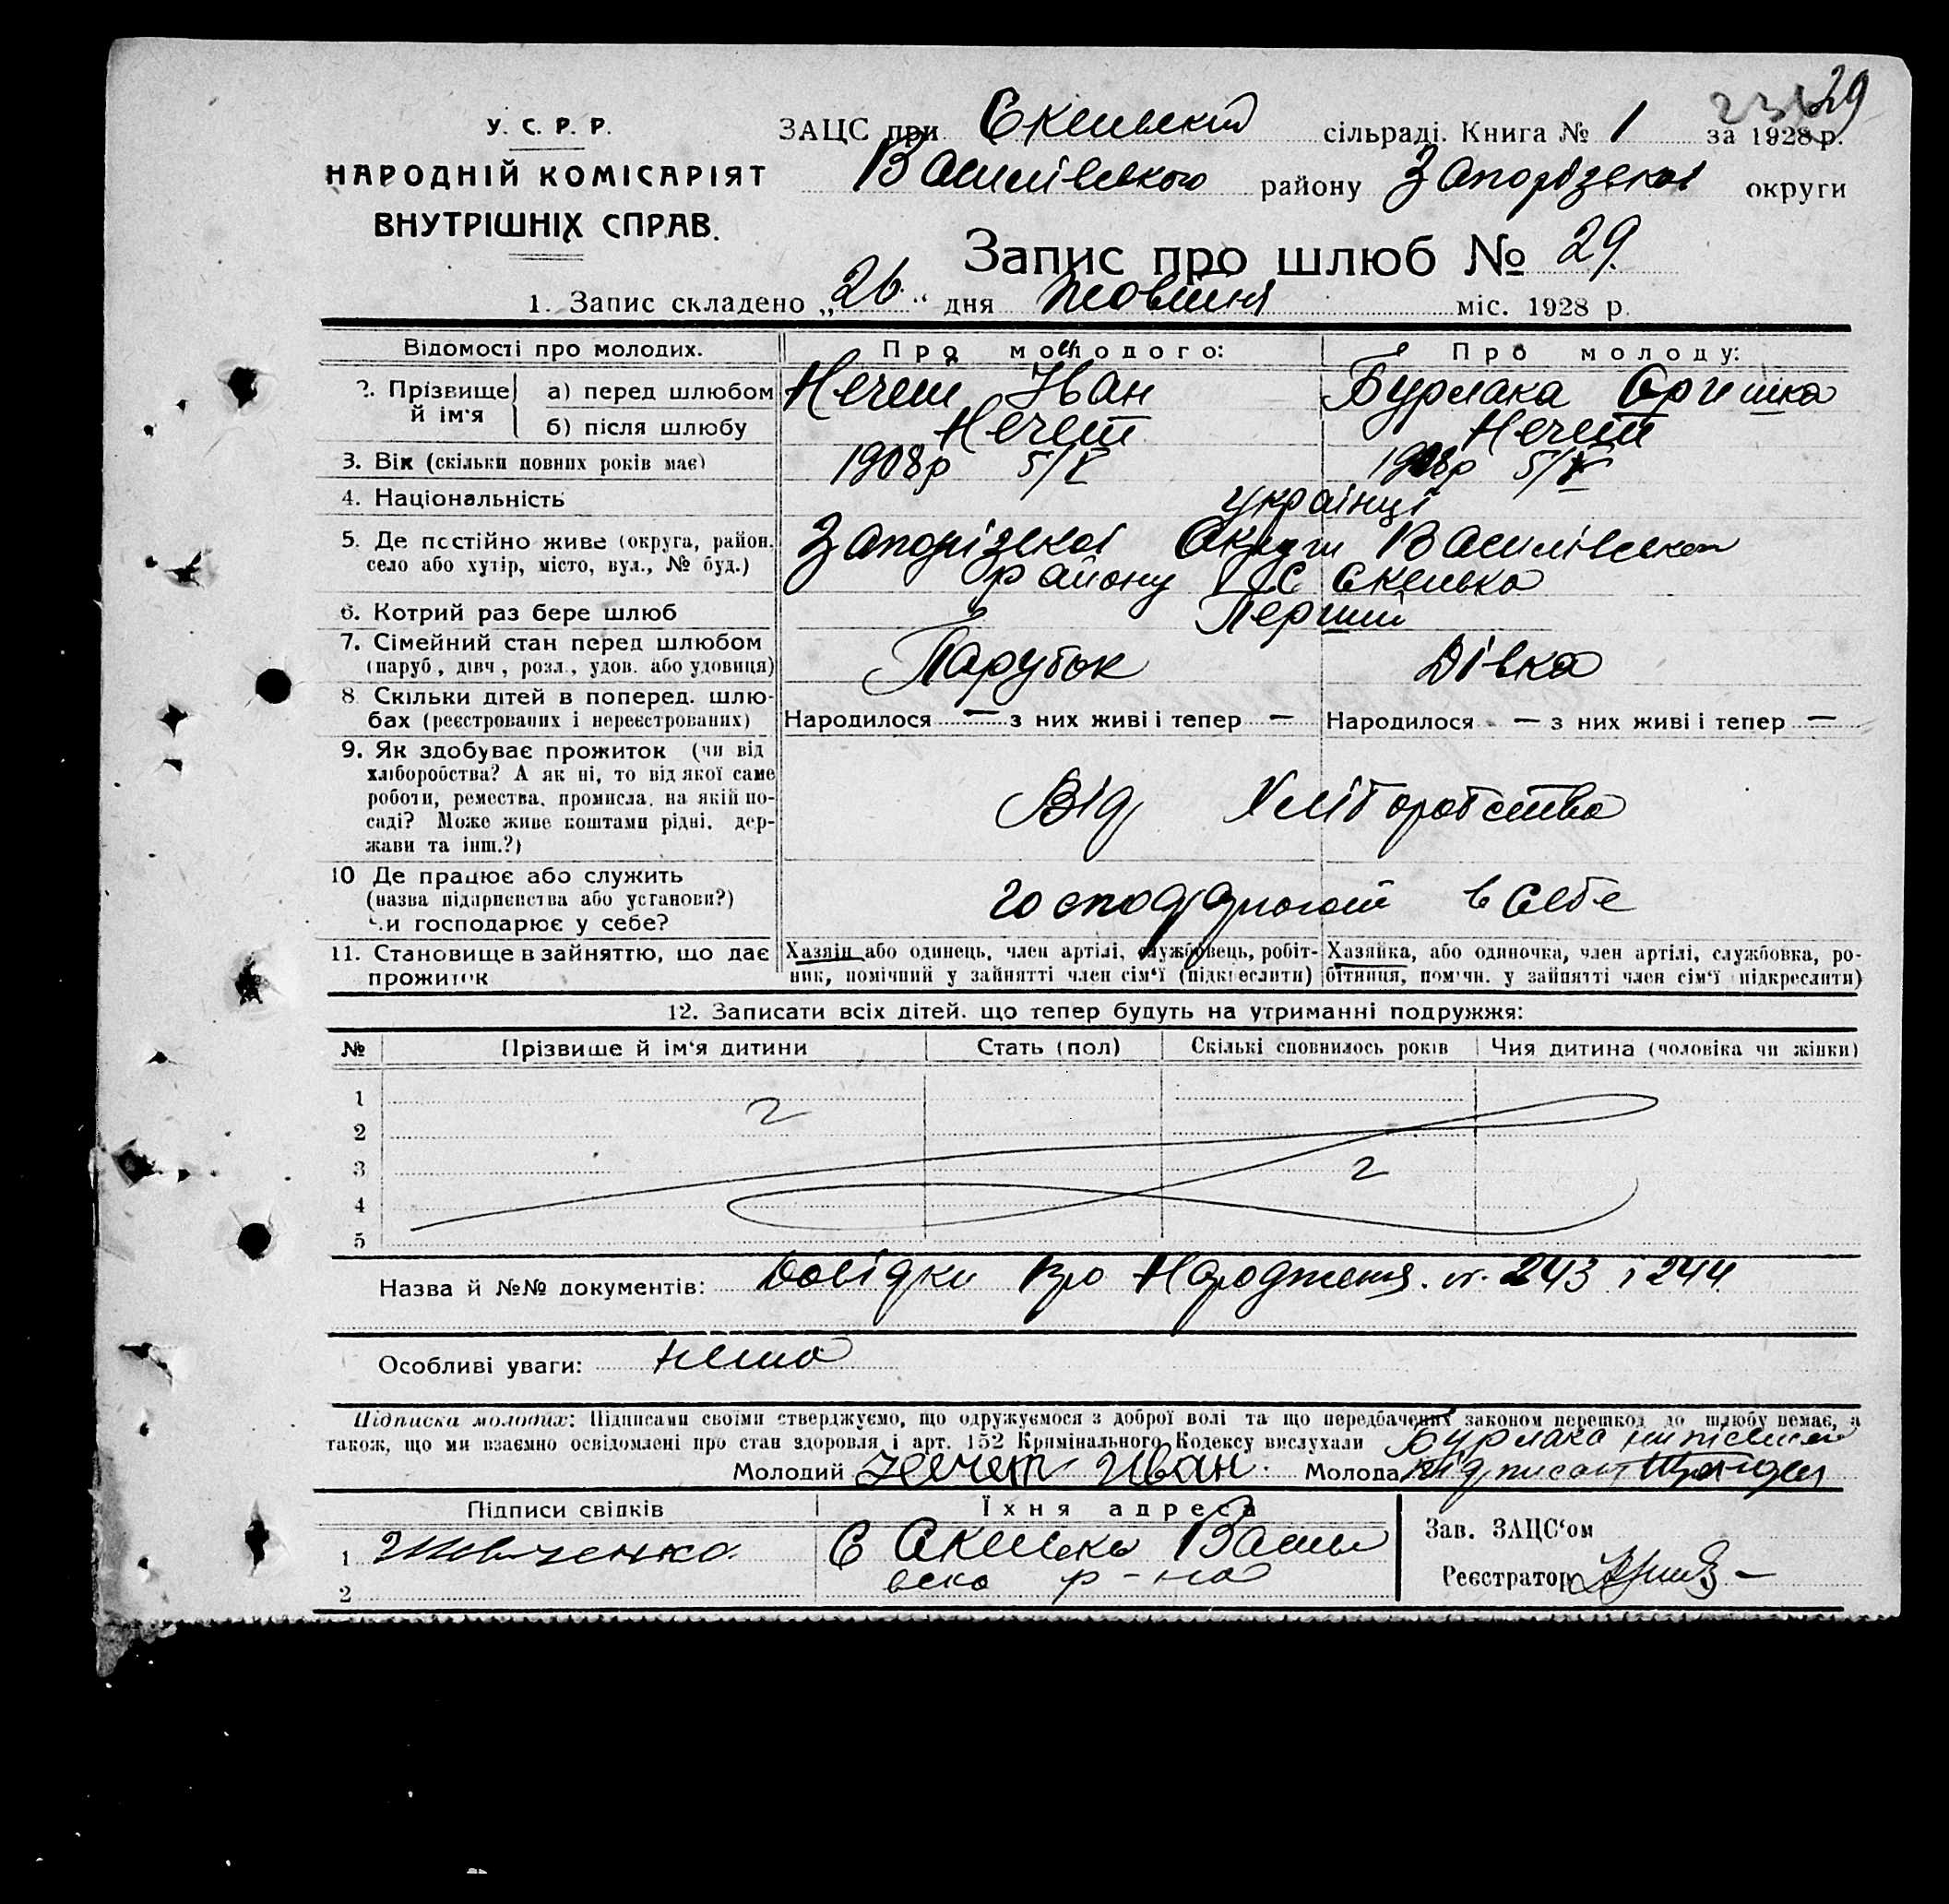 29
У. С. Р. Р.
НАРОДНІЙ КОМІСАРІЯТ
ВНУТРІШНІХ СПРАВ.
ЗАЦС при Скельській сільраді. Книга № 1 за 1928 р.
Василівського району Запорізької округи
Запис про шлюб № 29.
1. Запис складено „26“ дня Жовтня міс. 1928 р.
Відомості про молодих. Про молодого: Про молоду:
2. Прізвище й ім‘я а) перед шлюбом Нечет Іван Бурлака Оришка
б) після шлюбу Нечет Нечет
3. Вік (скільки повних років має) 1908р 5/V 1908р 5/V
4. Національність українці
5. Де постійно живе (округа, район, село або хутір, місто, вул., № буд.) Запорізької Округи Василівського
району С Скелька
6. Котрий раз бере шлюб Перший
7. Сімейний стан перед шлюбом
(паруб., дівч., розл., удов. або удовиця) Парубок Дівка
8. Скільки дітей в поперед. шлю-
бах (реєстрованих і нереєстрованих) Народилося — з них живі і тепер — Народилося — з них живі і тепер —
9. Як здобуває прожиток (чи від
хліборобства? А як ні, то від якої саме
роботи, ремества, промисла, на якій по-
саді? Може живе коштами рідні, дер-
жави та інш.?) Від Хліборобства
10 Де працює або служить
(назва підприємства або установи?)
Чи господарює у себе? в Себе
11. Становище в зайняттю, що дає Хазяїн або одинець, член артілі, службовець, робіт- Хазяйка, або одиночка, член артілі, службовка, ро-
прожиток ник, помічний у зайнятті член сім‘ї (підкреслити) бітниця, помічн. у зайнятті член сім‘ї (підкреслити)
12. Записати всіх дітей, що тепер будуть на утриманні подружжя:
№ Прізвище й ім‘я дитини Стать (пол) Скількі сповнилось років Чия дитина (чоловіка чи жінки)
1
2
3
4
5
Назва й №№ документів: Довідки про Народження. № 243 і 244
Особливі уваги: нема
Підписка молодих: Підписами своїми стверджуємо, що одружуємося з доброї волі та що передбачених законом перешкод до шлюбу немає, а
також, що ми взаємно освідомлені про стан здоровля і арт. 152 Кримінального Кодексу вислухали Бурлака
Молодий Нечет Иван. Молода
Підписи свідків Їхня адреса
1 Шевченко С Скелька Васи
вско р-на
2
Зав. ЗАЦС‘ом
Реєстратор